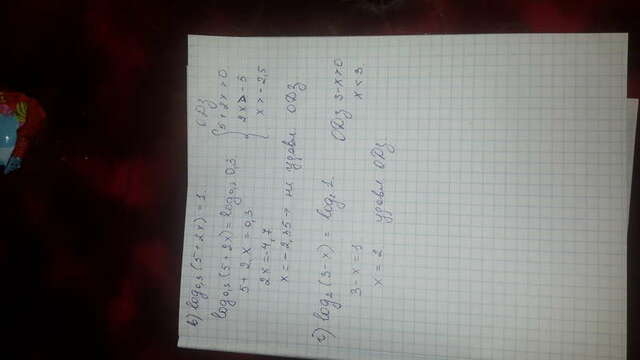 в) log₀,₃(5+2x) = 1 ОДЗ
log₀,₃(5+2x) = log₀,₃ 0,3 { 5+2x>0
5+2x = 0,3 2x > -5
2x = -4,7 x > -2,5
x = -2,35 → не удовл ОДЗ
г) log₂(3-x) = log₂ 1 ОДЗ 3-x>0
3-x = 1 x < 3
x = 2 удовл ОДЗ